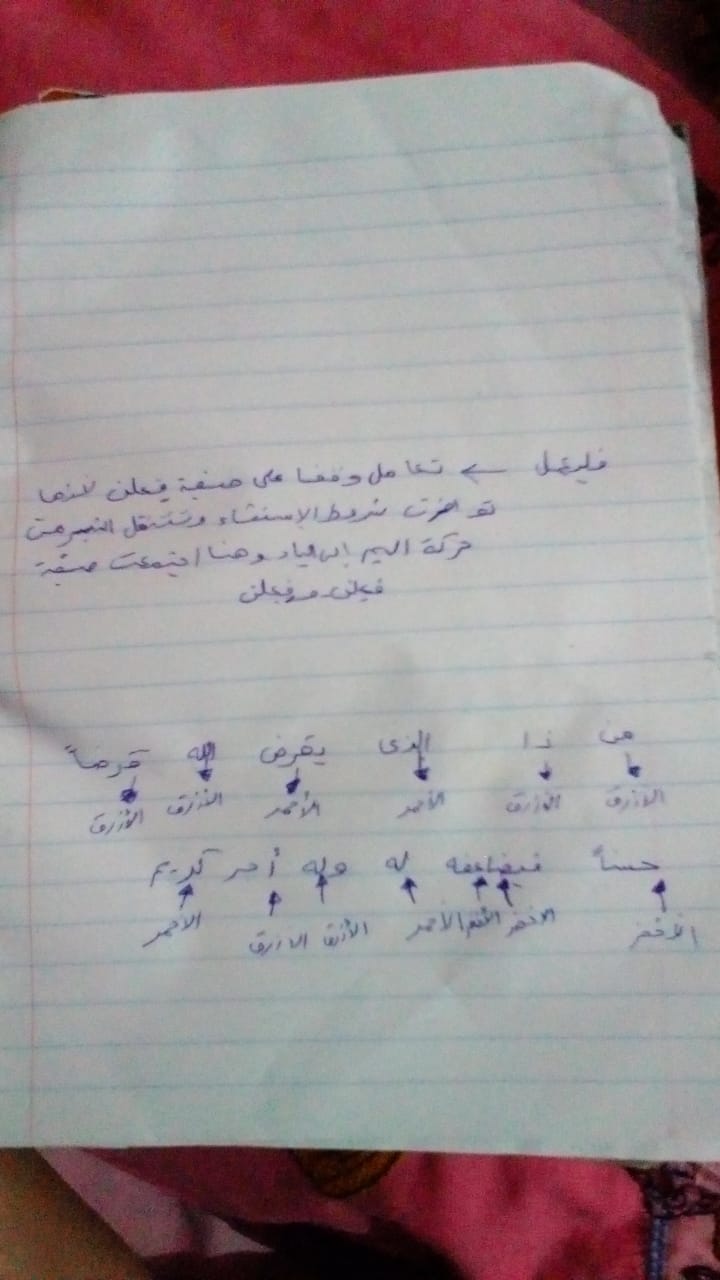 فليعمل ← تعامل وفقا على صيغة فعلن لانها
توافرت شروط الإستثناء وتنتقل
حركة الميم إلى الياء وهنا اجتمعت صيغة
فعلن وفعلن
من ذا الذى يقرض الله قرضاً
الازرق الازرق الأحمر الأحمر الأزرق الأزرق
حسناً فيضاعفه له وله أجر كريم
الأخضر الاخضر الأخضر الأحمر الأزرق الازرق الأحمر